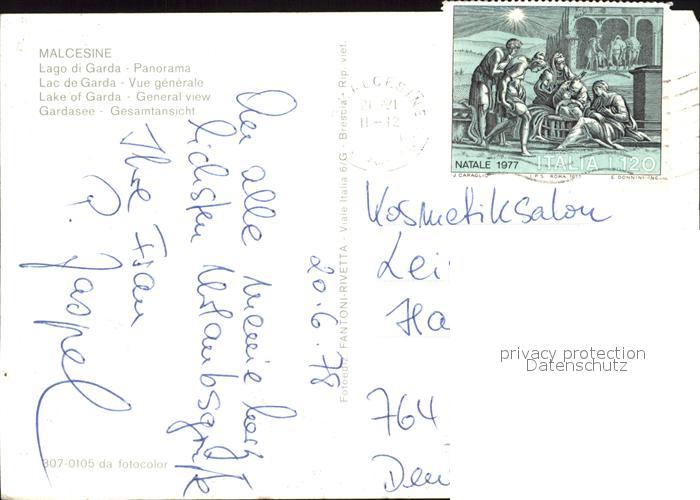 MALCESINE
Lago di Garda - Panorama
Lac de Garda - Vue générale
Lake of Garda - General view
Gardasee - Gesamtansicht
20.6.78
An alle meine herz
lichsten Urlaubsgrüße
Ihre Frau
P. Jaspel
307-0105 da fotocolor
Fotoediz. FANTONI-RIVETTA - Viale Italia 6/G - Brescia - Rip. viet.
MALCESINE
21 VI
11-12
NATALE 1977 ITALIA L.120
J. CARAGLIO I.P.S. ROMA 1977 E. DONNINI INC.
Kosmetiksalon
Lei
Ha
764
Deu
privacy protection
Datenschutz